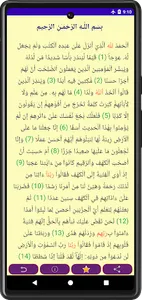 9:10
بِسْمِ اللَّهِ الرَّحْمَنِ الرَّحِيمِ
الْحَمْدُ لِلَّهِ الَّذِي أَنْزَلَ عَلَى عَبْدِهِ الْكِتَابَ وَلَمْ يَجْعَلْ
لَهُ عِوَجًا (1) قَيِّمًا لِيُنْذِرَ بَأْسًا شَدِيدًا مِنْ لَدُنْهُ
وَيُبَشِّرَ الْمُؤْمِنِينَ الَّذِينَ يَعْمَلُونَ الصَّالِحَاتِ أَنَّ لَهُمْ
أَجْرًا حَسَنًا (2) مَاكِثِينَ فِيهِ أَبَدًا (3) وَيُنْذِرَ الَّذِينَ
قَالُوا اتَّخَذَ اللَّهُ وَلَدًا (4) مَا لَهُمْ بِهِ مِنْ عِلْمٍ وَلَا
لِآبَائِهِمْ كَبُرَتْ كَلِمَةً تَخْرُجُ مِنْ أَفْوَاهِهِمْ إِنْ يَقُولُونَ
إِلَّا كَذِبًا (5) فَلَعَلَّكَ بَاخِعٌ نَفْسَكَ عَلَى آثَارِهِمْ إِنْ لَمْ
يُؤْمِنُوا بِهَذَا الْحَدِيثِ أَسَفًا (6) إِنَّا جَعَلْنَا مَا عَلَى
الْأَرْضِ زِينَةً لَهَا لِنَبْلُوَهُمْ أَيُّهُمْ أَحْسَنُ عَمَلًا (7)
وَإِنَّا لَجَاعِلُونَ مَا عَلَيْهَا صَعِيدًا جُرُزًا (8) أَمْ حَسِبْتَ أَنَّ
أَصْحَابَ الْكَهْفِ وَالرَّقِيمِ كَانُوا مِنْ آيَاتِنَا عَجَبًا (9)
إِذْ أَوَى الْفِتْيَةُ إِلَى الْكَهْفِ فَقَالُوا رَبَّنَا آتِنَا مِنْ
لَدُنْكَ رَحْمَةً وَهَيِّئْ لَنَا مِنْ أَمْرِنَا رَشَدًا (10) فَضَرَبْنَا
عَلَى آذَانِهِمْ فِي الْكَهْفِ سِنِينَ عَدَدًا (11) ثُمَّ بَعَثْنَاهُمْ
لِنَعْلَمَ أَيُّ الْحِزْبَيْنِ أَحْصَى لِمَا لَبِثُوا أَمَدًا (12) نَحْنُ
نَقُصُّ عَلَيْكَ نَبَأَهُمْ بِالْحَقِّ إِنَّهُمْ فِتْيَةٌ آمَنُوا بِرَبِّهِمْ
وَزِدْنَاهُمْ هُدًى (13) وَرَبَطْنَا عَلَى قُلُوبِهِمْ إِذْ قَامُوا
فَقَالُوا رَبُّنَا رَبُّ السَّمَاوَاتِ وَالْأَرْضِ لَنْ نَدْعُوَ مِنْ
دُونِهِ إِلَهًا لَقَدْ قُلْنَا إِذًا شَطَطًا (14)